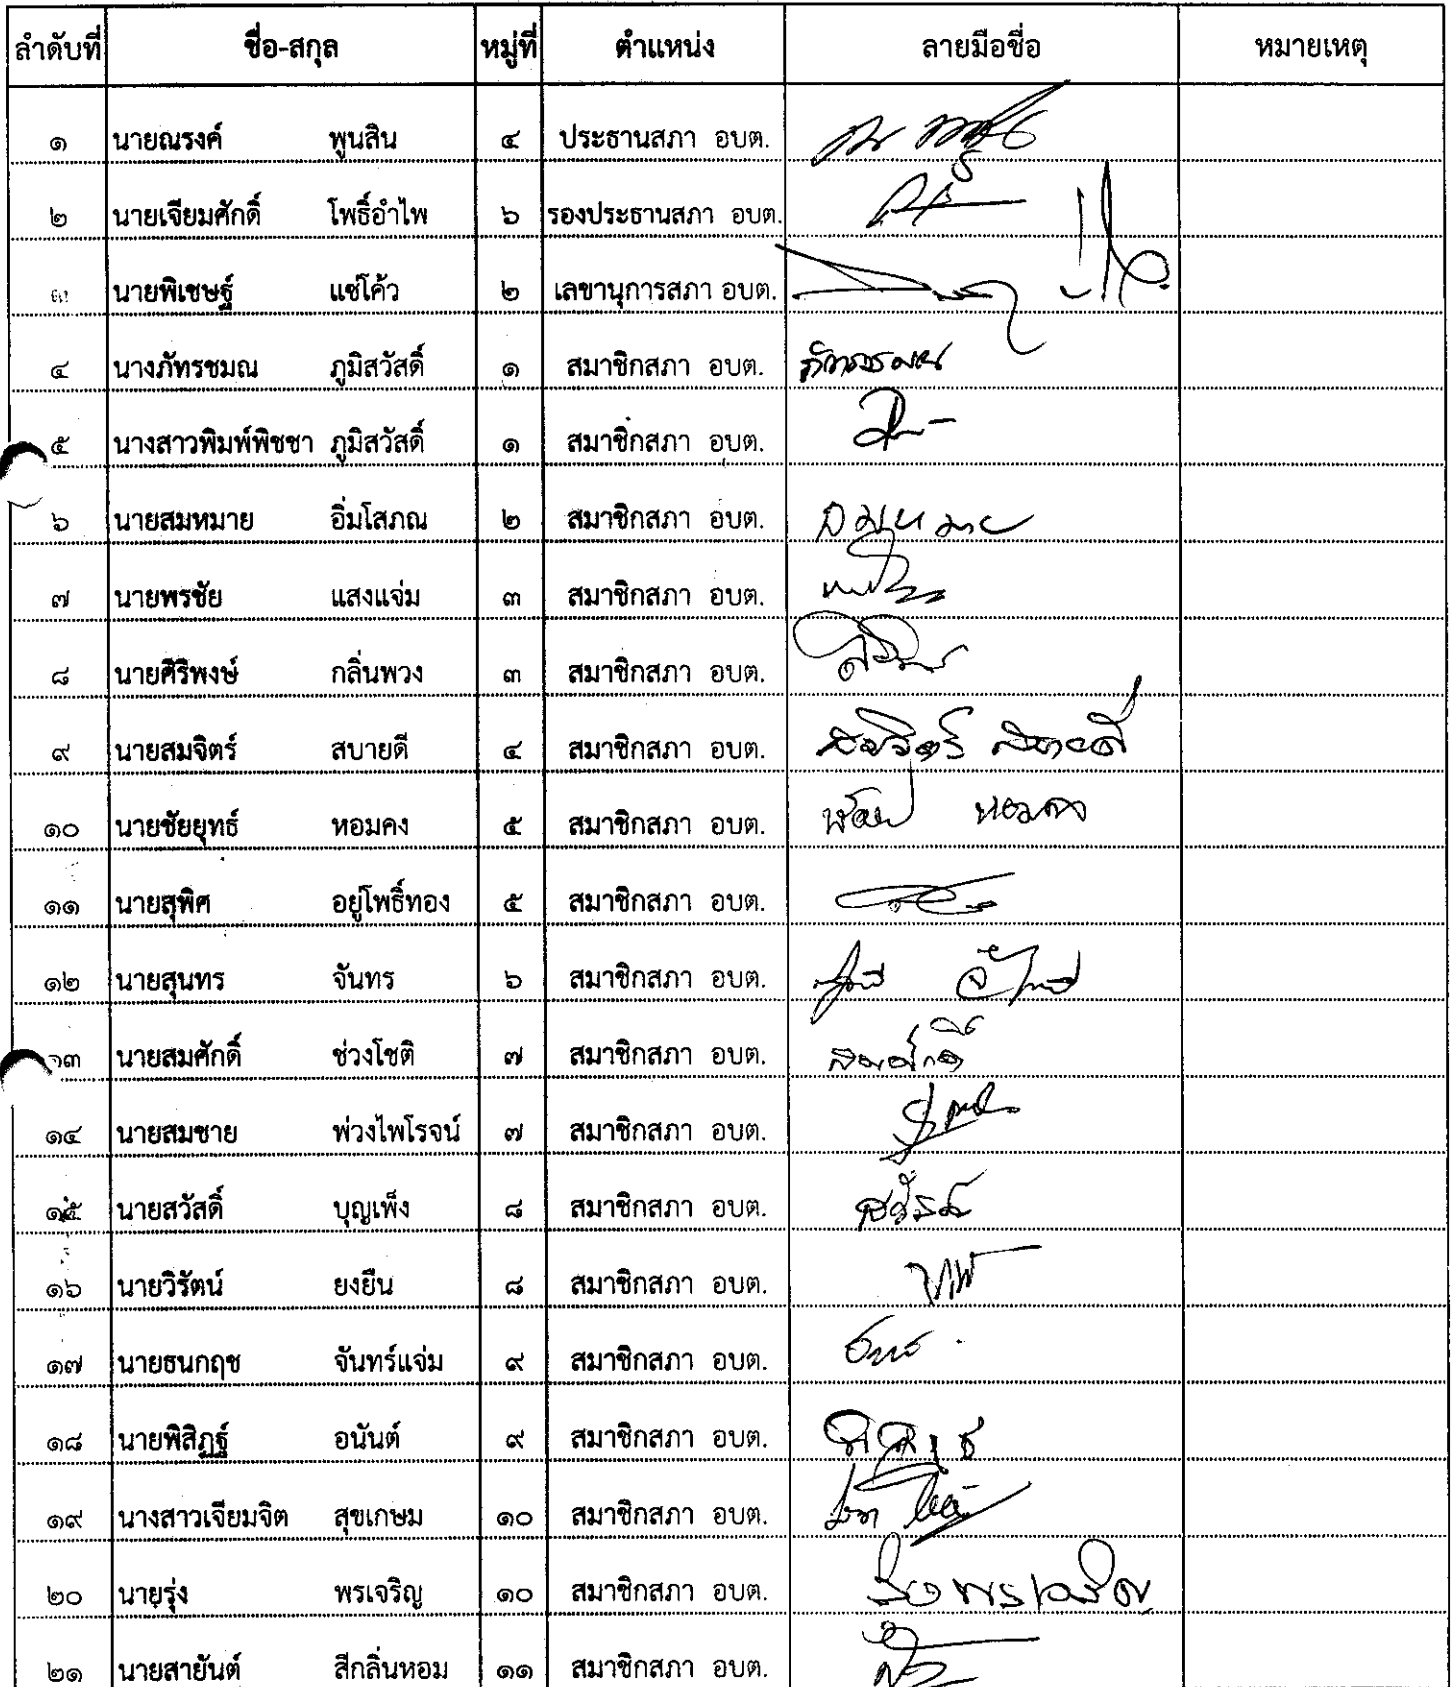 ลำดับที่ ชื่อ-สกุล หมู่ที่ ตำแหน่ง ลายมือชื่อ หมายเหตุ
๑ นายณรงค์ พูนสิน ๔ ประธานสภา อบต.
๒ นายเจียมศักดิ์ โพธิ์อำไพ ๖ รองประธานสภา อบต.
๓ นายพิเชษฐ์ แซ่โค้ว ๒ เลขานุการสภา อบต.
๔ นางภัทรชมณ ภูมิสวัสดิ์ ๑ สมาชิกสภา อบต. ภัทรชมณ
๕ นางสาวพิมพ์พิชชา ภูมิสวัสดิ์ ๑ สมาชิกสภา อบต.
๖ นายสมหมาย อิ่มโสภณ ๒ สมาชิกสภา อบต. สมหมาย
๗ นายพรชัย แสงแจ่ม ๓ สมาชิกสภา อบต.
๘ นายศิริพงษ์ กลิ่นพวง ๓ สมาชิกสภา อบต.
๙ นายสมจิตร์ สบายดี ๔ สมาชิกสภา อบต. สมจิตร์ สบายดี
๑๐ นายชัยยุทธ์ หอมคง ๕ สมาชิกสภา อบต. หอมคง
๑๑ นายสุพิศ อยู่โพธิ์ทอง ๕ สมาชิกสภา อบต.
๑๒ นายสุนทร จันทร ๖ สมาชิกสภา อบต.
๑๓ นายสมศักดิ์ ช่วงโชติ ๗ สมาชิกสภา อบต. สมศักดิ์
๑๔ นายสมชาย พ่วงไพโรจน์ ๗ สมาชิกสภา อบต.
๑๕ นายสวัสดิ์ บุญเพ็ง ๘ สมาชิกสภา อบต. สวัสดิ์
๑๖ นายวิรัตน์ ยงยืน ๘ สมาชิกสภา อบต.
๑๗ นายธนกฤช จันทร์แจ่ม ๙ สมาชิกสภา อบต.
๑๘ นายพิสิฏฐ์ อนันต์ ๙ สมาชิกสภา อบต.
๑๙ นางสาวเจียมจิต สุขเกษม ๑๐ สมาชิกสภา อบต.
๒๐ นายรุ่ง พรเจริญ ๑๐ สมาชิกสภา อบต. รุ่ง พรเจริญ
๒๑ นายสายันต์ สีกลิ่นหอม ๑๑ สมาชิกสภา อบต.